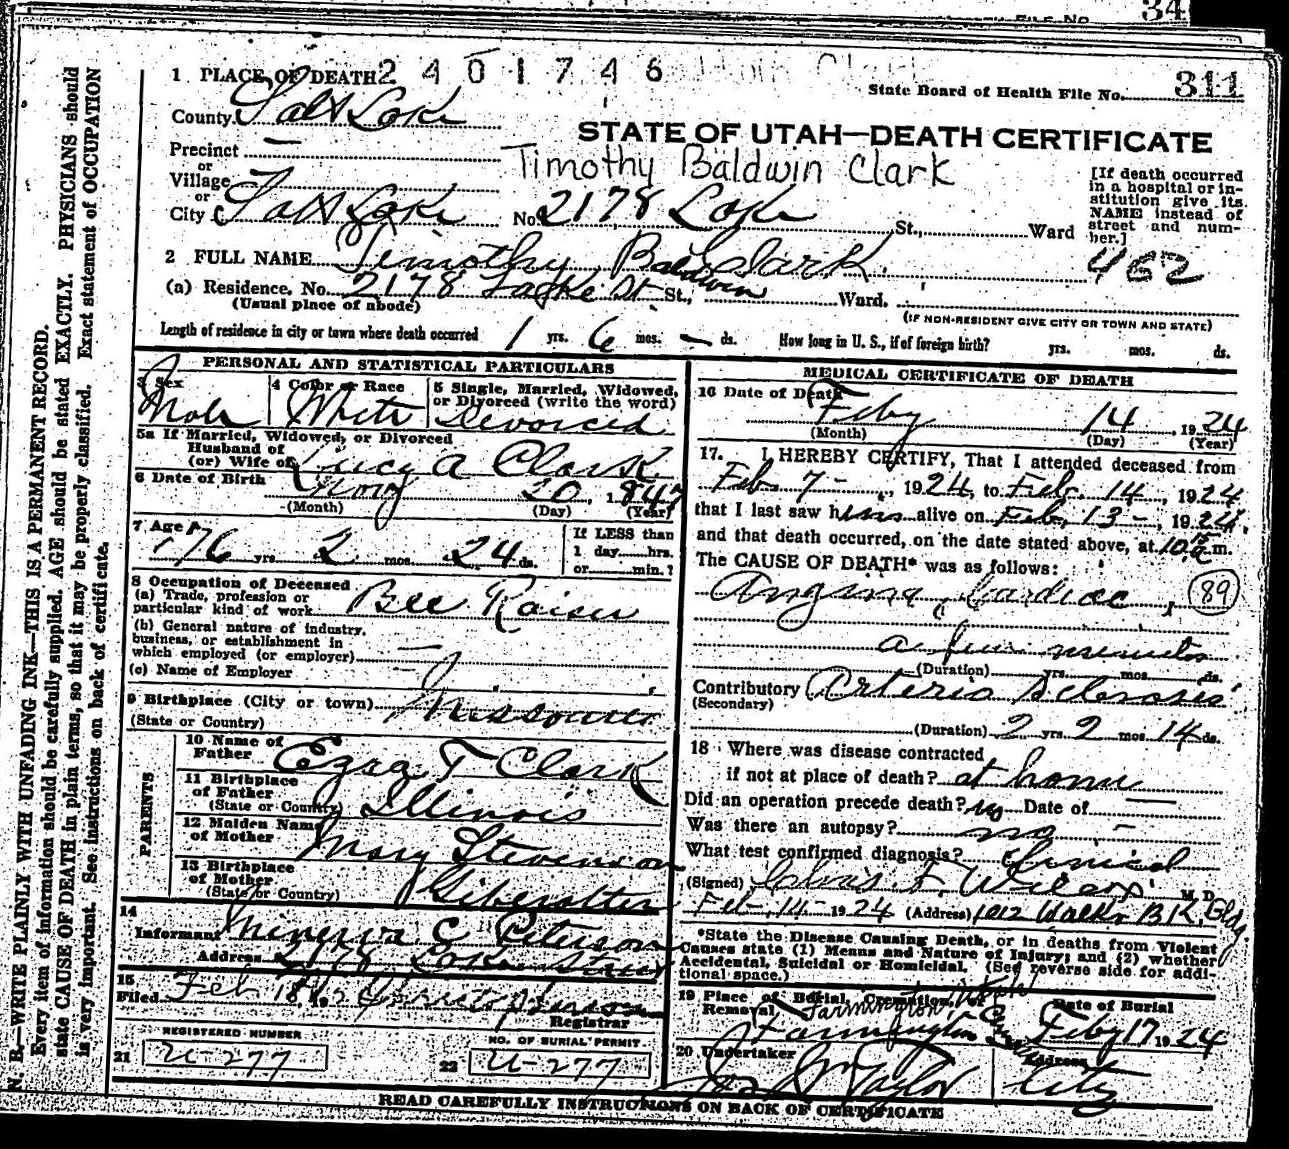 34
FILE No
1 PLACE OF DEATH 2 4 0 1 7 4 6
State Board of Health File No. 311
County Salt Lake
STATE OF UTAH—DEATH CERTIFICATE
Precinct —
Timothy Baldwin Clark
or
Village
or
City Salt Lake No. 2178 Lake St., Ward
[If death occurred
in a hospital or in-
stitution give its
NAME instead of
street and num-
ber.]
462
2 FULL NAME Timothy Baldwin Clark.
(a) Residence. No. 2178 Lake St St., Ward.
(Usual place of abode)
(IF NON-RESIDENT GIVE CITY OR TOWN AND STATE)
Length of residence in city or town where death occurred 1 yrs. 6 mos. — ds. How long in U. S., if of foreign birth? yrs. mos. ds.
PERSONAL AND STATISTICAL PARTICULARS
3 Sex
Male
4 Color or Race
White
5 Single, Married, Widowed,
or Divorced (write the word)
Divorced
5a If Married, Widowed, or Divorced
Husband of
(or) Wife of Lucy A Clark
6 Date of Birth Nov 20, 1847
(Month) (Day) (Year)
7 Age 76 yrs. 2 mos. 24 ds.
If LESS than
1 day......hrs.
or......min.?
8 Occupation of Deceased
(a) Trade, profession or
particular kind of work Bee Raiser
(b) General nature of industry,
business, or establishment in
which employed (or employer) —
(c) Name of Employer
9 Birthplace (City or town) Missouri
(State or Country)
PARENTS
10 Name of
Father Ezra T Clark
11 Birthplace
of Father
(State or Country) Illinois
12 Maiden Name
of Mother Mary Stevenson
13 Birthplace
of Mother
(State or Country) Giberalter
14
Informant Minerva C Peterson
Address 2178 Lake Street
15
Filed Feb 18 192
Registrar
REGISTERED NUMBER
21 U-277
NO. OF BURIAL PERMIT
22 U-277
MEDICAL CERTIFICATE OF DEATH
16 Date of Death
Feby 14, 1924
(Month) (Day) (Year)
17. I HEREBY CERTIFY, That I attended deceased from
Feb 7 -, 1924, to Feb. 14, 1924
that I last saw him alive on Feb. 13 -, 1924,
and that death occurred, on the date stated above, at 10.15 a.m.
The CAUSE OF DEATH* was as follows:
Angina Cardiac, 89
a few minutes
(Duration) yrs. mos. ds.
Contributory Arterio Sclerosis
(Secondary)
(Duration) 2 yrs. 2 mos. 14 ds.
18 Where was disease contracted
if not at place of death? at home
Did an operation precede death? No Date of —
Was there an autopsy? no -
What test confirmed diagnosis? Clinical
(Signed) Chas F. Wilcox M. D.
Feb - 14 - 1924 (Address) 1012 Walker BK. Bldg.
*State the Disease Causing Death, or in deaths from Violent
Causes state (1) Means and Nature of Injury; and (2) whether
Accidental, Suicidal or Homicidal. (See reverse side for addi-
tional space.)
19 Place of Burial, Cremation, or Removal Farmington Utah
Farmington
Date of Burial
Feby 17 1924
20 Undertaker
Jos Wm Taylor
Address
City
READ CAREFULLY INSTRUCTIONS ON BACK OF CERTIFICATE
N. B.—WRITE PLAINLY WITH UNFADING INK—THIS IS A PERMANENT RECORD.
Every item of information should be carefully supplied. AGE should be stated EXACTLY. PHYSICIANS should
state CAUSE OF DEATH in plain terms, so that it may be properly classified. Exact statement of OCCUPATION
is very important. See instructions on back of certificate.